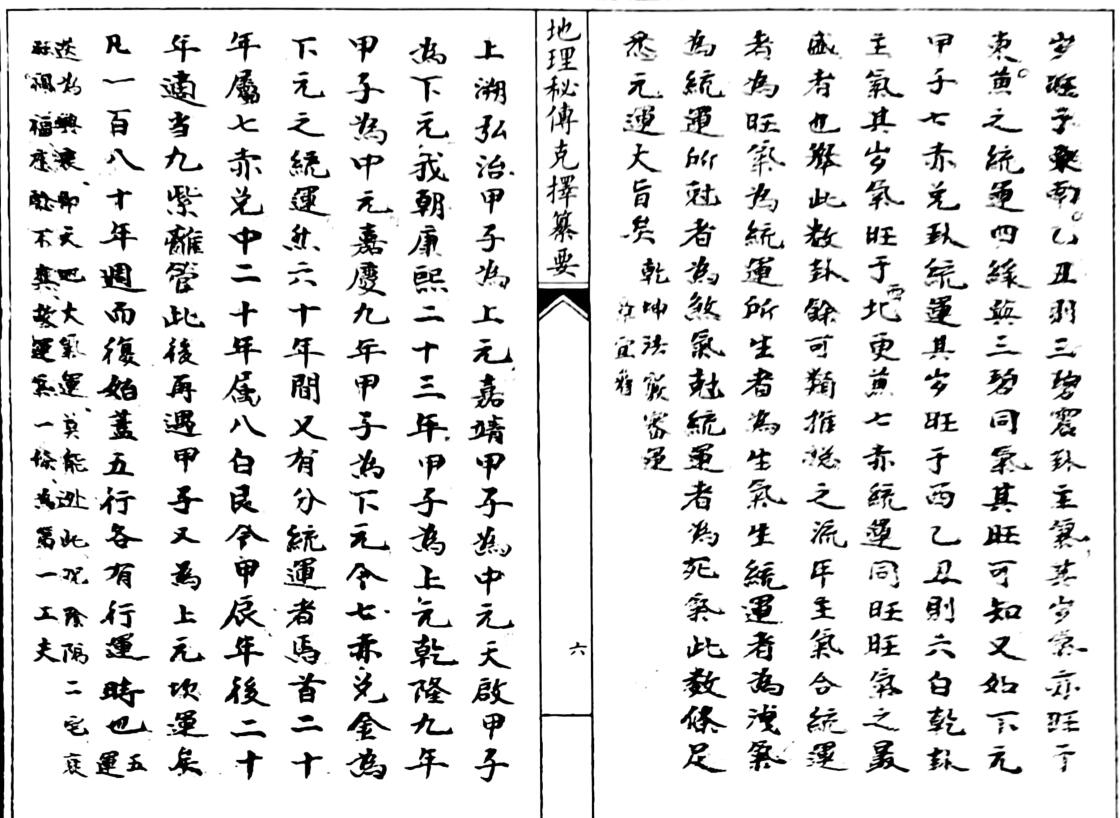 岁旺于東南乙丑則三碧震卦主氣其岁氣亦旺于
東萬之統運四緑與三碧同氣其旺可知又如下元
甲子七赤兑卦統運其岁旺于西乙丑則六白乾卦
主氣其岁氣旺于西北更兼七赤統運同旺旺氣之最
盛者也舉此数卦餘可類推总之流年主氣合統運
者為旺氣為統運所生者為生氣生統運者為洩氣
為統運所尅者為煞氣尅統運者為死氣此数條足
悉元運大旨矣
地理秘傳克擇纂要
六
上溯弘治甲子為上元嘉靖甲子為中元天啟甲子
為下元我朝康熙二十三年甲子為上元乾隆九年
甲子為中元嘉慶九年甲子為下元今七赤兑金為
下元之統運然六十年間又有分統運者焉首二十
年屬七赤兑中二十年属八白艮今甲辰年後二十
年適当九紫離管此後再遇甲子又為上元坎運矣
凡一百八十年週而復始蓋五行各有行運時也五運
迭為興衰即天地大氣運莫能逃此况陰陽二宅衰
旺禍福
運氣一條為第一工夫